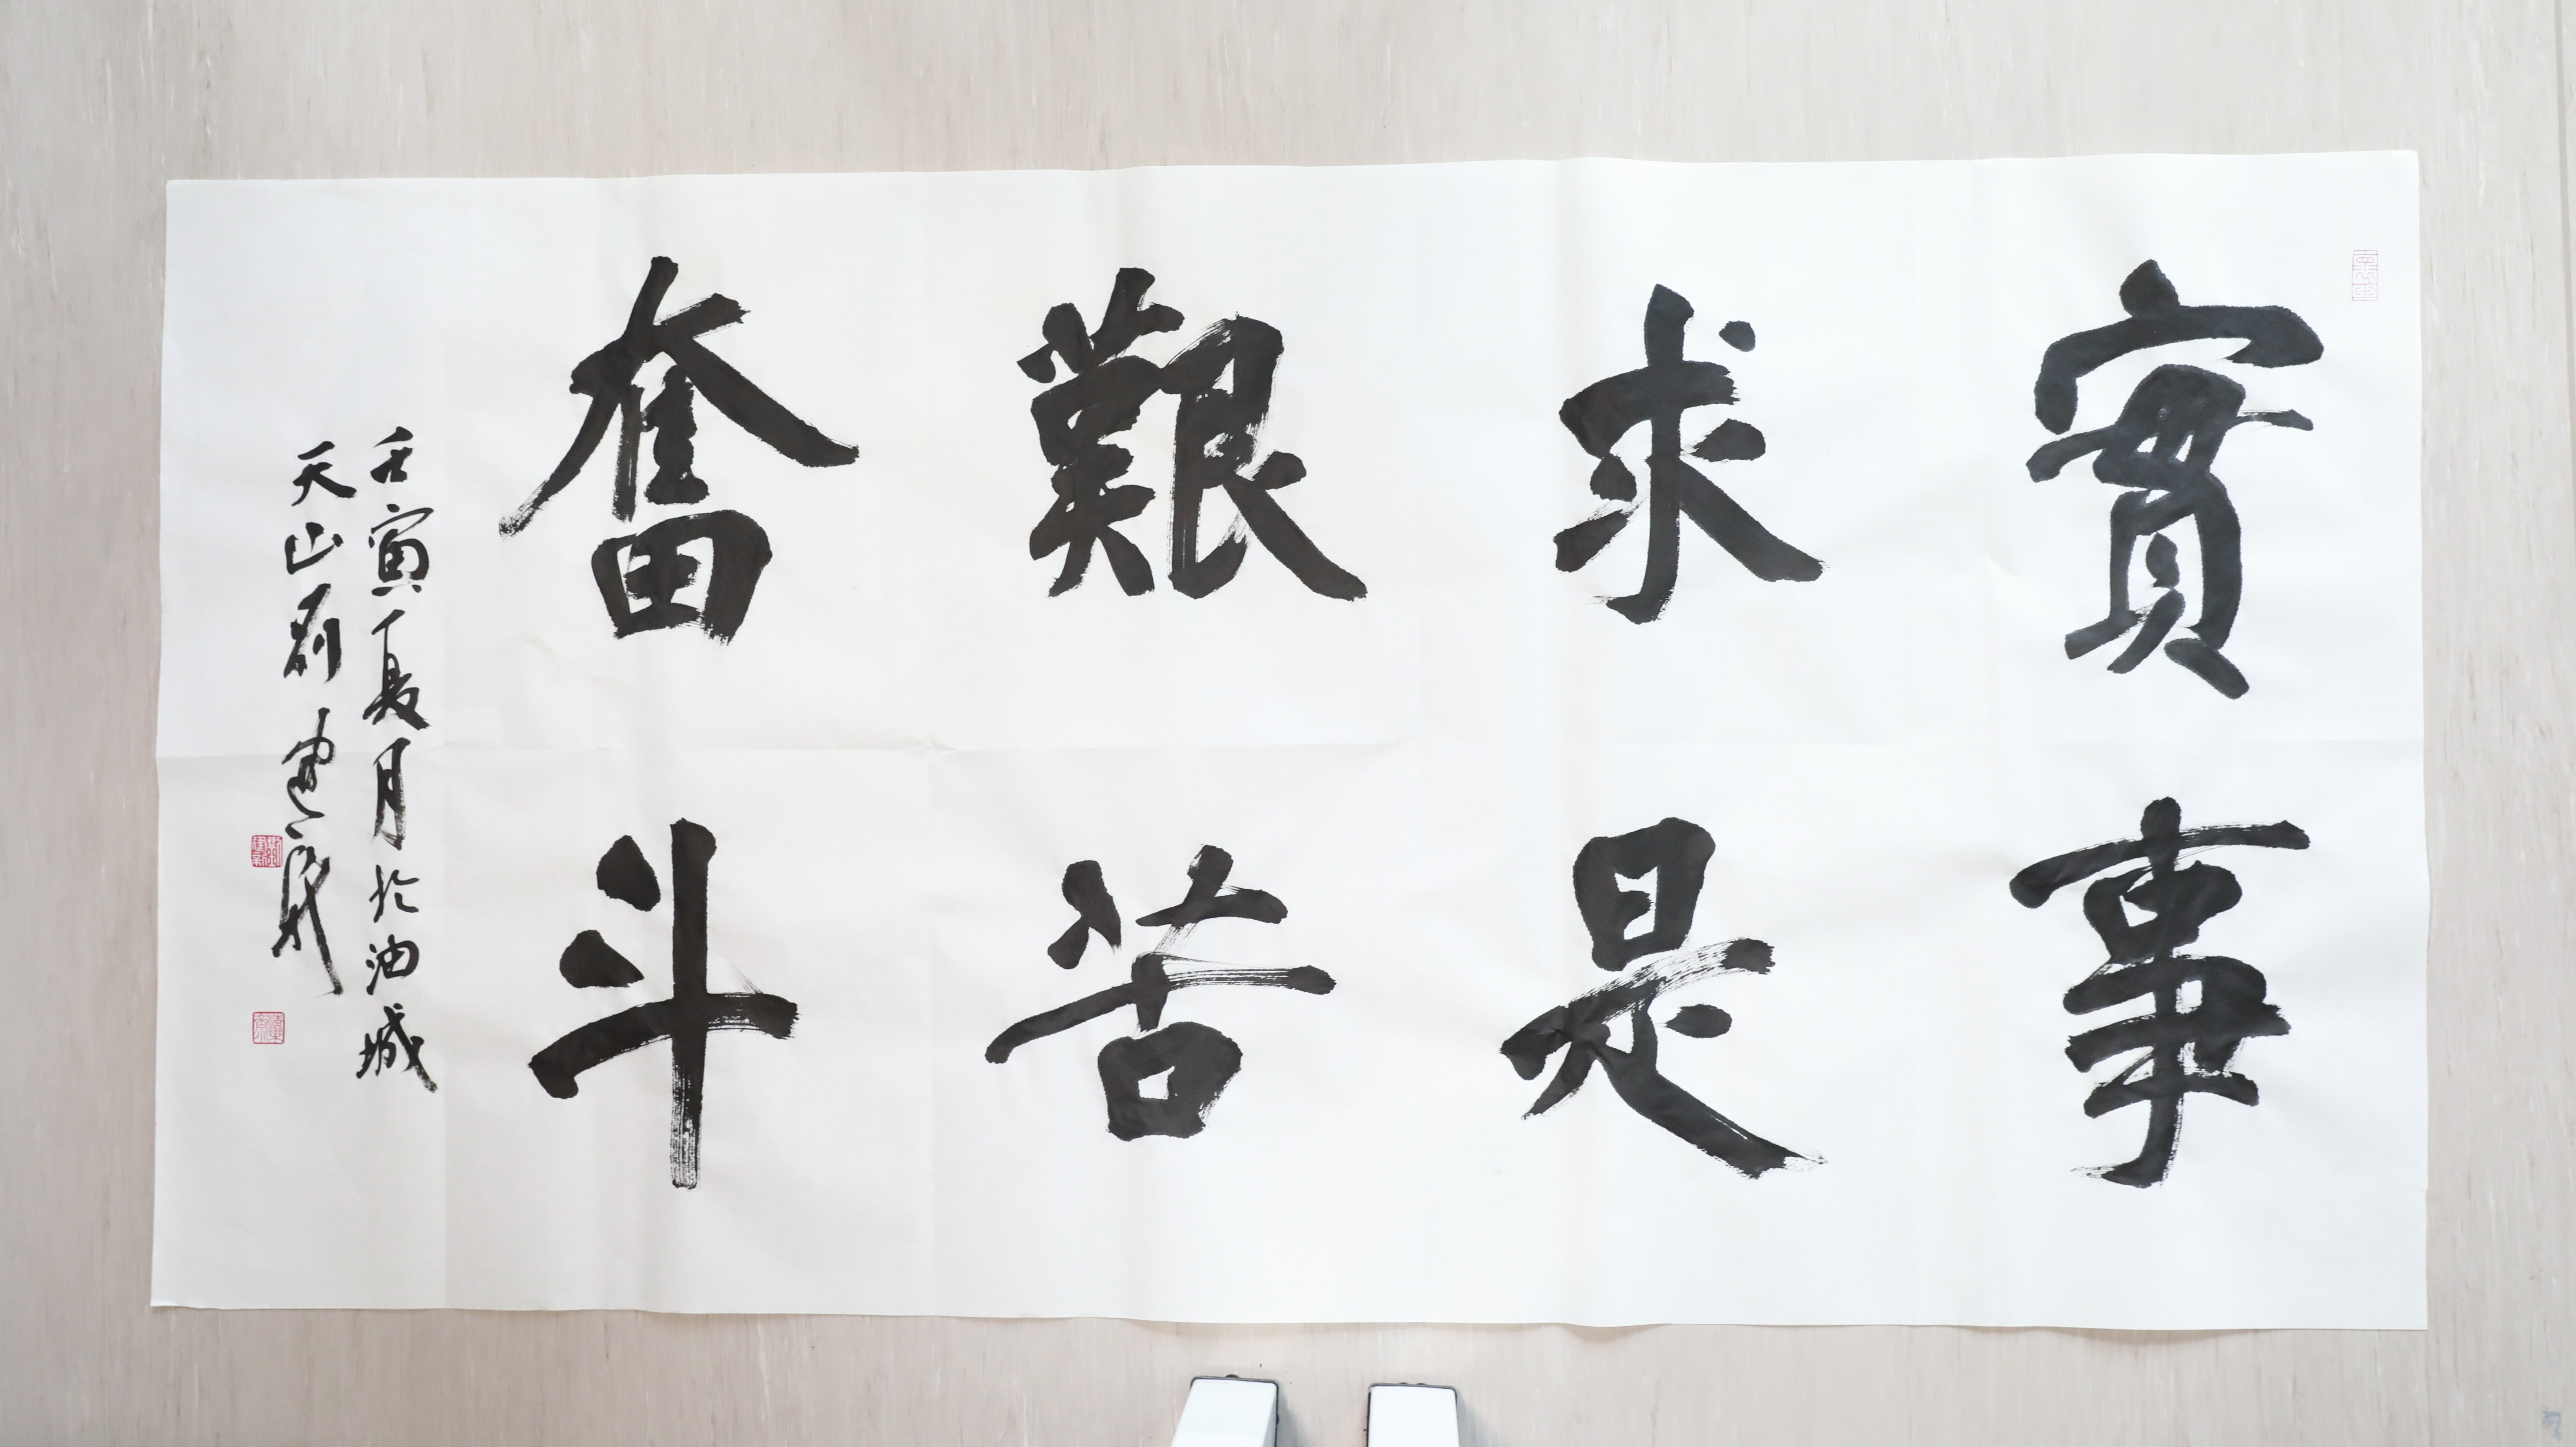 實事
求是
艱苦
奮斗
壬寅夏月於油城
天山劉建新
劉建新